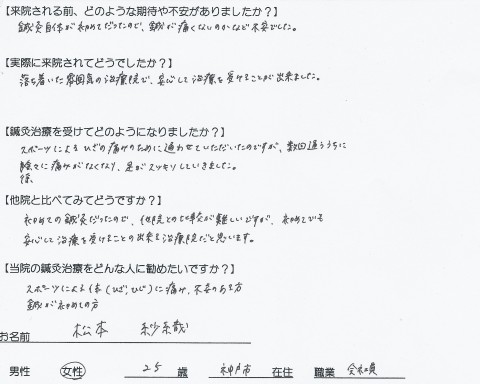 【来院される前、どのような期待や不安がありましたか？】
鍼灸自体が初めてだったので、鍼が痛くないのかなど不安でした。
【実際に来院されてどうでしたか？】
落ち着いた雰囲気の治療院で、安心して治療を受けることが出来ました。
【鍼灸治療を受けてどのようになりましたか？】
スポーツによるひざの痛みのために通わせていただいたのですが、数回通ううちに
徐々に痛みがなくなり、足がスッキリしていきました。
徐
【他院と比べてみてどうですか？】
初めての鍼灸だったので、他院との比較が難しいですが、初めてでも
安心して治療を受けることの出来る治療院だと思います。
【当院の鍼灸治療をどんな人に勧めたいですか？】
スポーツによる体（ひざ、ひじ）に痛み、不安のある方
鍼が初めての方
お名前 松本 紗哉
男性 女性 25 歳 神戸市 在住 職業 会社員